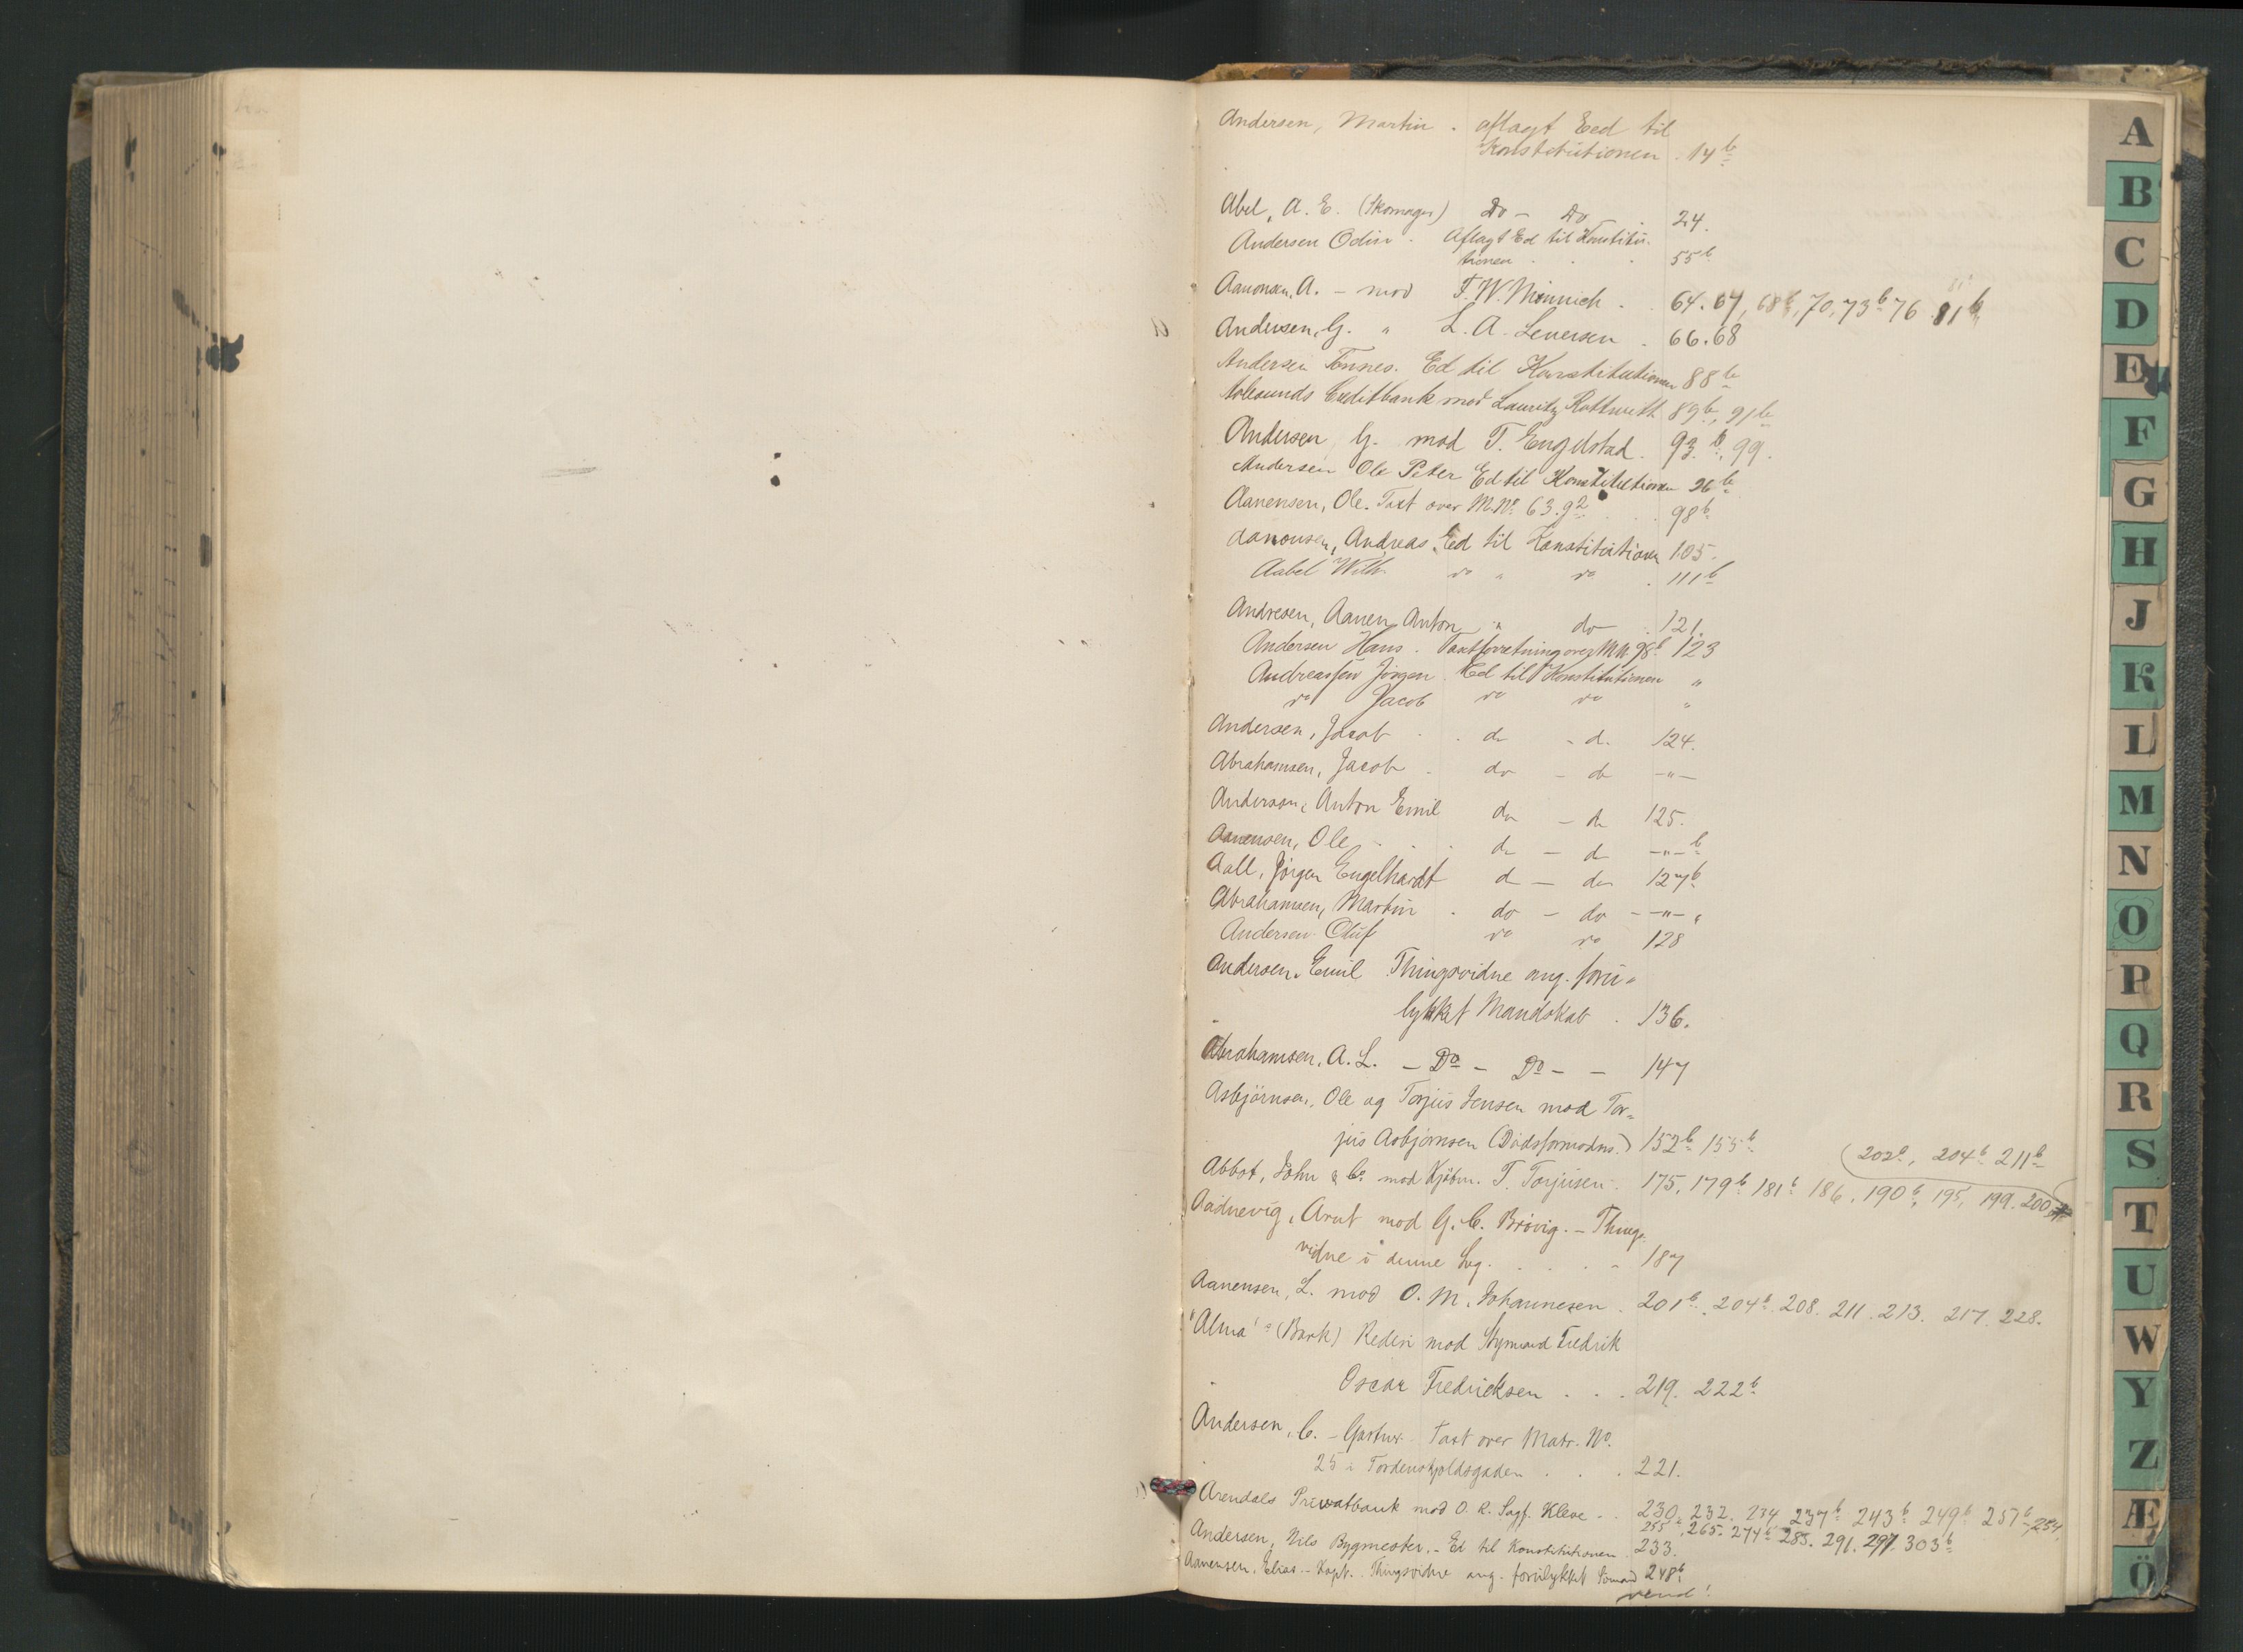 Andersen, Martin . aflagt Eed til
Konstitutionen . 14 b
Abel, A. E. (Skomager) Do - Do 24.
Andersen Odin . Aflagt Ed til Konstitu-
tionen . . . 55 b
Aanonsen, A. - mod F. W. Münnich . 64. 67, 68 b, 70, 73 b 76 81 b
Andersen, G. " L. A. Leversen . 66. 68
Andersen Tönnes. Ed til Konstitutionen 88 b
Aalesunds Creditbank mod Lauritz 89 b, 91 b
Andersen G. mod T. Engelstad . 93 b, 99.
Andersen Ole Peter Ed til Konstitutionen 96 b
Aanensen, Ole. Taxt over M.No. 63.92 . . 98 b
Aanonsen, Andreas Ed til Konstitutionen 105.
Aabel Wilh. do " do . 111 b
Andresen, Aanen Anton " do . 121.
Andersen Hans . Taxtforretning over M N 98 b 123
Andreassen Jörgen . Ed til Konstitutionen "
do Jacob do do "
Andersen, Jacob . . do - do 124.
Abrahamsen, Jacob . do - do -"-
Anderson, Anton Emil do - do 125.
Aanensen, Ole . . . do - do -"- b
Aall, Jörgen Engelhardt do - do 127 b
Abrahamsen, Martin . do - do - -"- "
Andersen Oluf do do 128
Andersen, Emil Thingsvidne ang. foru-
lykket Mandskab . 136.
Abrahamsen, A. L. - Do - Do - - 147
Asbjörnsen, Ole og Torjus Jensen mod Tor-
jus Asbjörnsen (Dödsformodn.) 152 b 155 b
202 b, 204 b 211 b
Abbot, John & Co mod Kjöbm. T. Torjusen . 175, 179 b 181 b 186, 190 b, 195, 199. 200
Aadnevig, Arnt mod G. C. Brövig. - Things-
vidne i denne Sag . . . . 187
Aanensen, L. mod O. M. Johannesen . 201 b. 204 b. 208. 211. 213. 217. 228.
"Alma" (Bark) Rederi mod Styrmand Fredrik
Oscar Fredriksen . . . 219. 222 b
Andersen, C. - Gartner - Taxt over Matr. No.
25 i Tordenskjoldsgaden . . . 221.
Arendals Privatbank mod O. R. Sagf. Kleve . . 230. 232. 234 237 b 243 b 249 b 257 b, 254
255, 265. 274 b 285. 291. 297. 303 b
Andersen, Nils Bygmester. - Ed til Konstitutionen . 233.
Aanensen, Elias. - Kapt. Thingsvidne ang. forulykket Sömand 248 b
vend!
A
B
C
D
E
F
G
H
J
K
L
M
N
O
P
Q
R
S
T
U
W
Y
Z
Æ
Ö